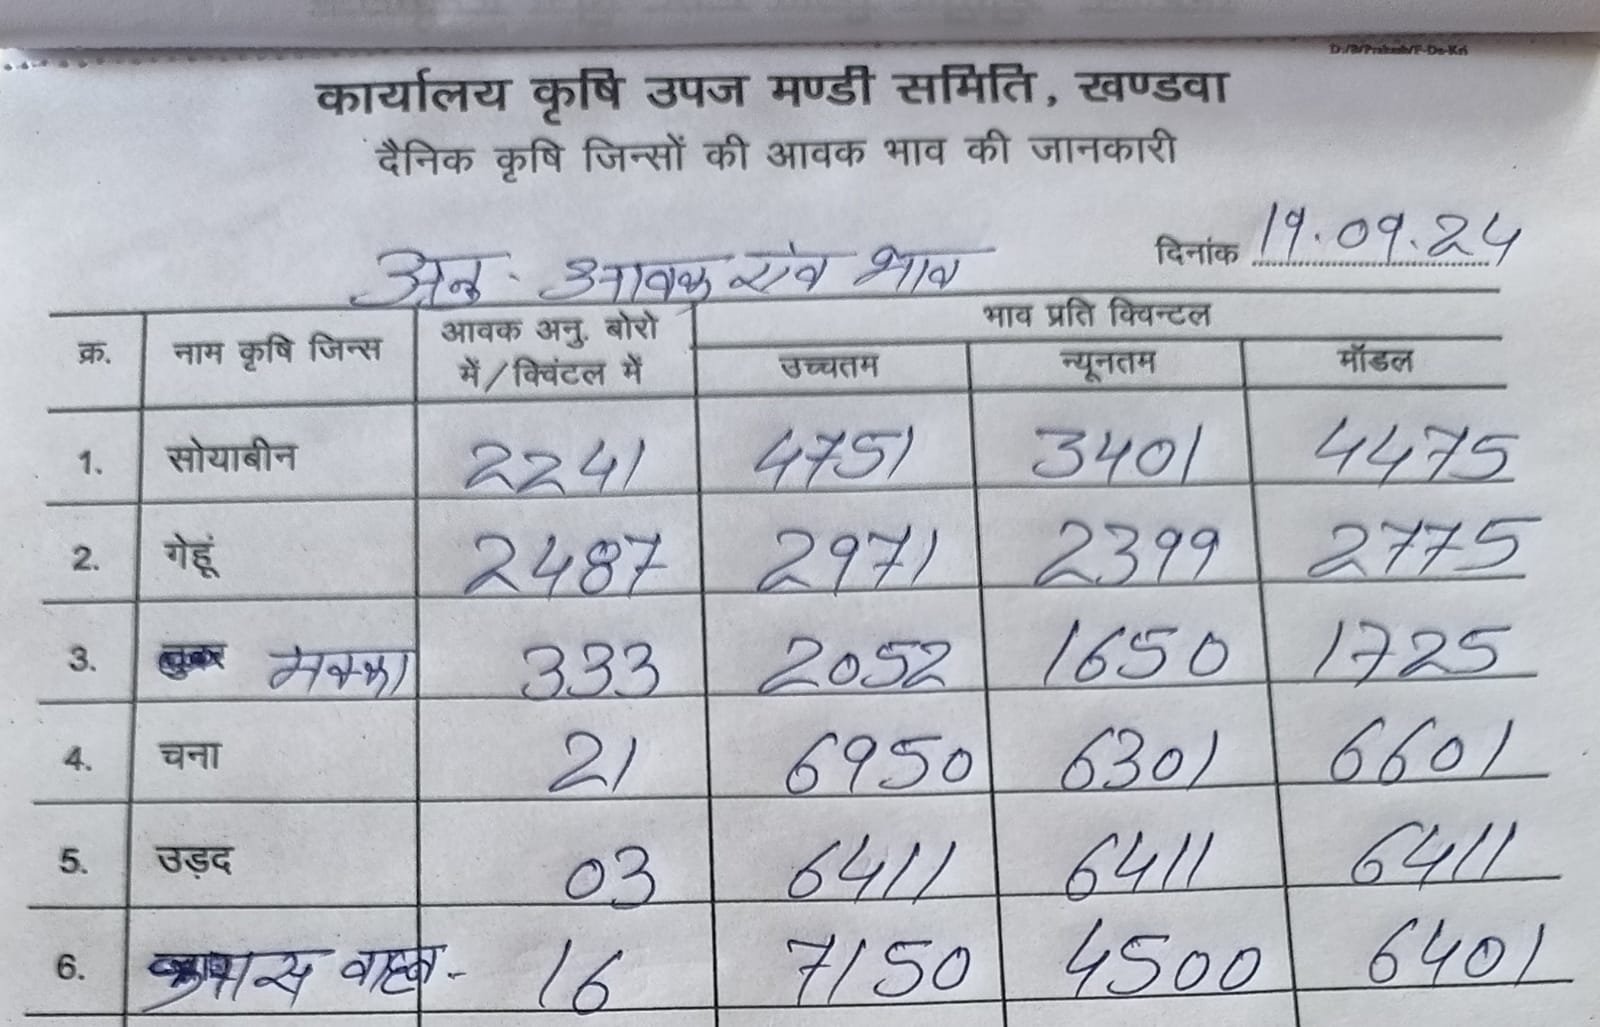 कार्यालय कृषि उपज मण्डी समिति, खण्डवा
दैनिक कृषि जिन्सों की आवक भाव की जानकारी
दिनांक 19.09.24
अनु. आवक एंव भाव
क्र. नाम कृषि जिन्स आवक अनु. बोरो में/क्विंटल में भाव प्रति क्विन्टल
उच्चतम न्यूनतम मॉडल
1. सोयाबीन 2241 4751 3401 4475
2. गेहूं 2487 2971 2399 2775
3. मक्का 333 2052 1650 1725
4. चना 21 6950 6301 6601
5. उड़द 03 6411 6411 6411
6. कपास वाहन - 16 7150 4500 6401